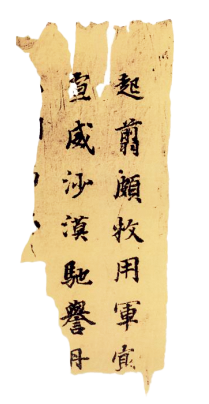 起翦頗牧用軍㝡
宣威沙漠馳譽丹